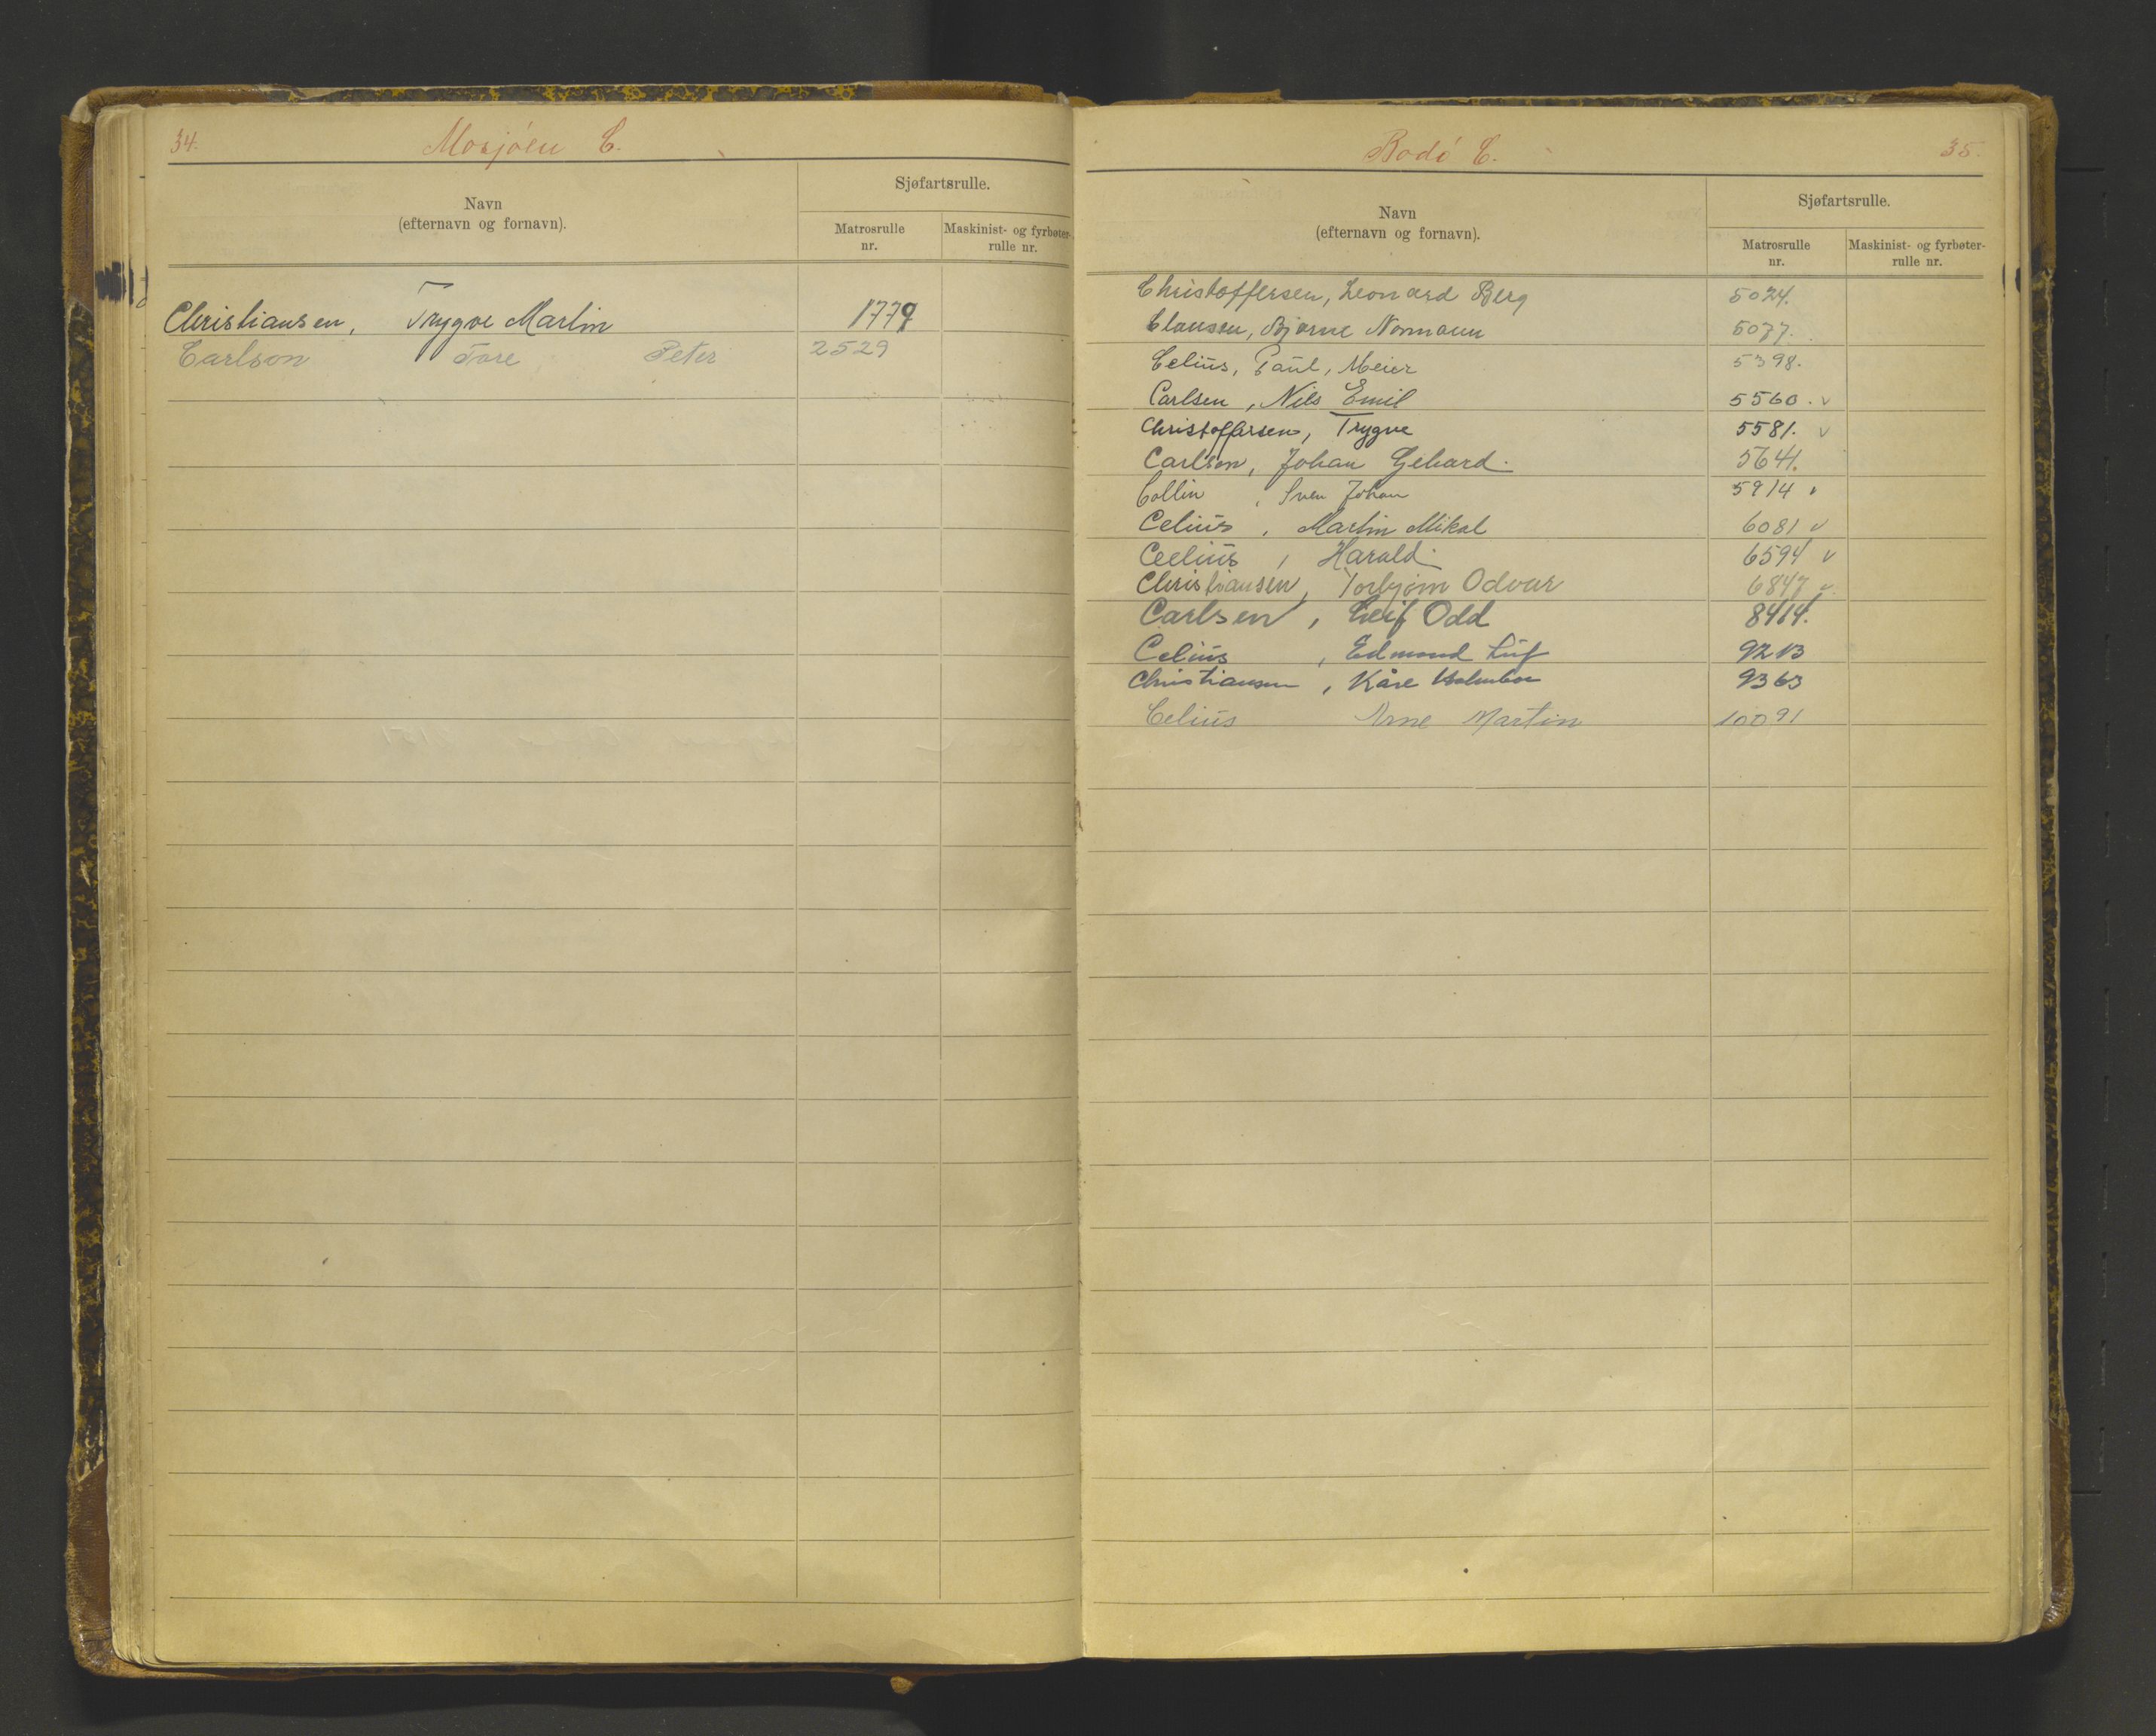 34.
Mosjöen C.
Navn
(efternavn og fornavn).
Sjøfartsrulle.
Matrosrulle
nr.
Maskinist- og fyrbøter-
rulle nr.
Christiansen, Trygve Martin 1779
Carlson Tore Peter 2529
Bodö C.
35.
Navn
(efternavn og fornavn).
Sjøfartsrulle.
Matrosrulle
nr.
Maskinist- og fyrbøter-
rulle nr.
Christoffersen, Leonard Berg 5024.
Clausen, Bjarne Normann 5077.
Celius, Paul, Meier 5398.
Carlsen, Nils Emil 5560. v
Christoffersen, Trygve 5581. v
Carlsen, Johan Gehard. 5641.
Collin, Sven Johan 5914 v
Celius, Martin Mikal 6081 v
Ceelius, Harald. 6594 v
Christiansen, Torbjørn Odvar 6847 v
Carlsen, Leif Odd 8414.
Celius, Edmund 9213
Christiansen, Kåre Holmboe 9363
Celius Arne Martin 10091